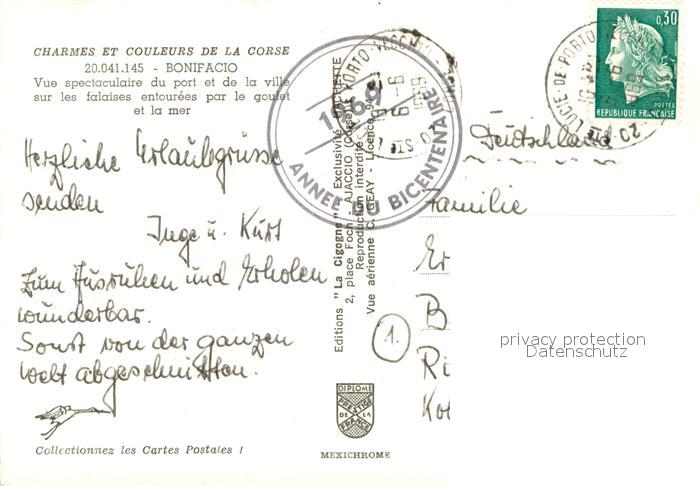 CHARMES ET COULEURS DE LA CORSE
20.041.145 - BONIFACIO
Vue spectaculaire du port et de la ville
sur les falaises entourées par le goulet
et la mer
Herzliche Urlaubsgrüsse
senden
Inge u. Kurt
Zum Ausruhen und Erholen
wunderbar.
Sonst von der ganzen
Welt abgeschnitten.
Collectionnez les Cartes Postales !
Editions "La Cigogne" Exclusivité HACHETTE
2, place Foch - AJACCIO (Corse)
Reproduction interdite
Vue aérienne C. GEAY - Licence
1769
ANNÉE DU BICENTENAIRE
1.
DIPLOME
PRESTIGE
DE LA
FRANCE
MEXICHROME
0,30
POSTES
REPUBLIQUE FRANÇAISE
STE LUCIE-DE-PORTO-VECCHIO
20
1969
STE LUCIE-DE-PORTO
20
Deutschland
Familie
Er
B
Ri
privacy protection
Datenschutz